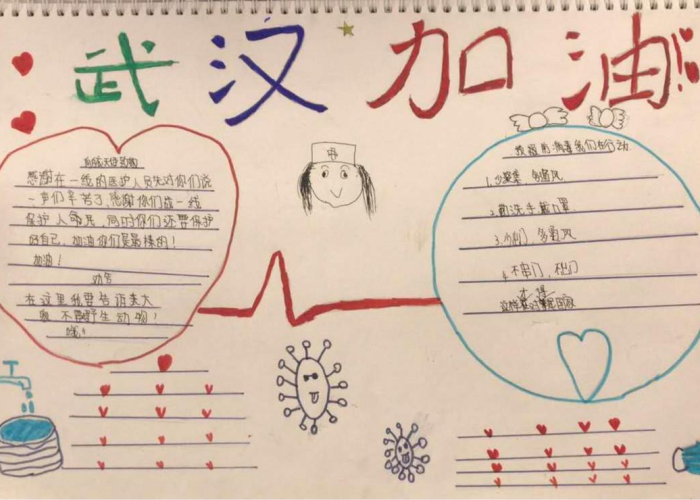 武汉加油!!
向白衣天使致敬
感谢在一线的医护人员先对你们说
一声们辛苦了,感谢你们在一线
保护人命民,同时你们还要保护
好自己,加油你们是最棒的!
加油!
劝告
在这里我要告诉大
不野生动物!
我们行动
1.少聚集,多通风
2.勤洗手戴口罩
3.小门,多通风
4.不串门,